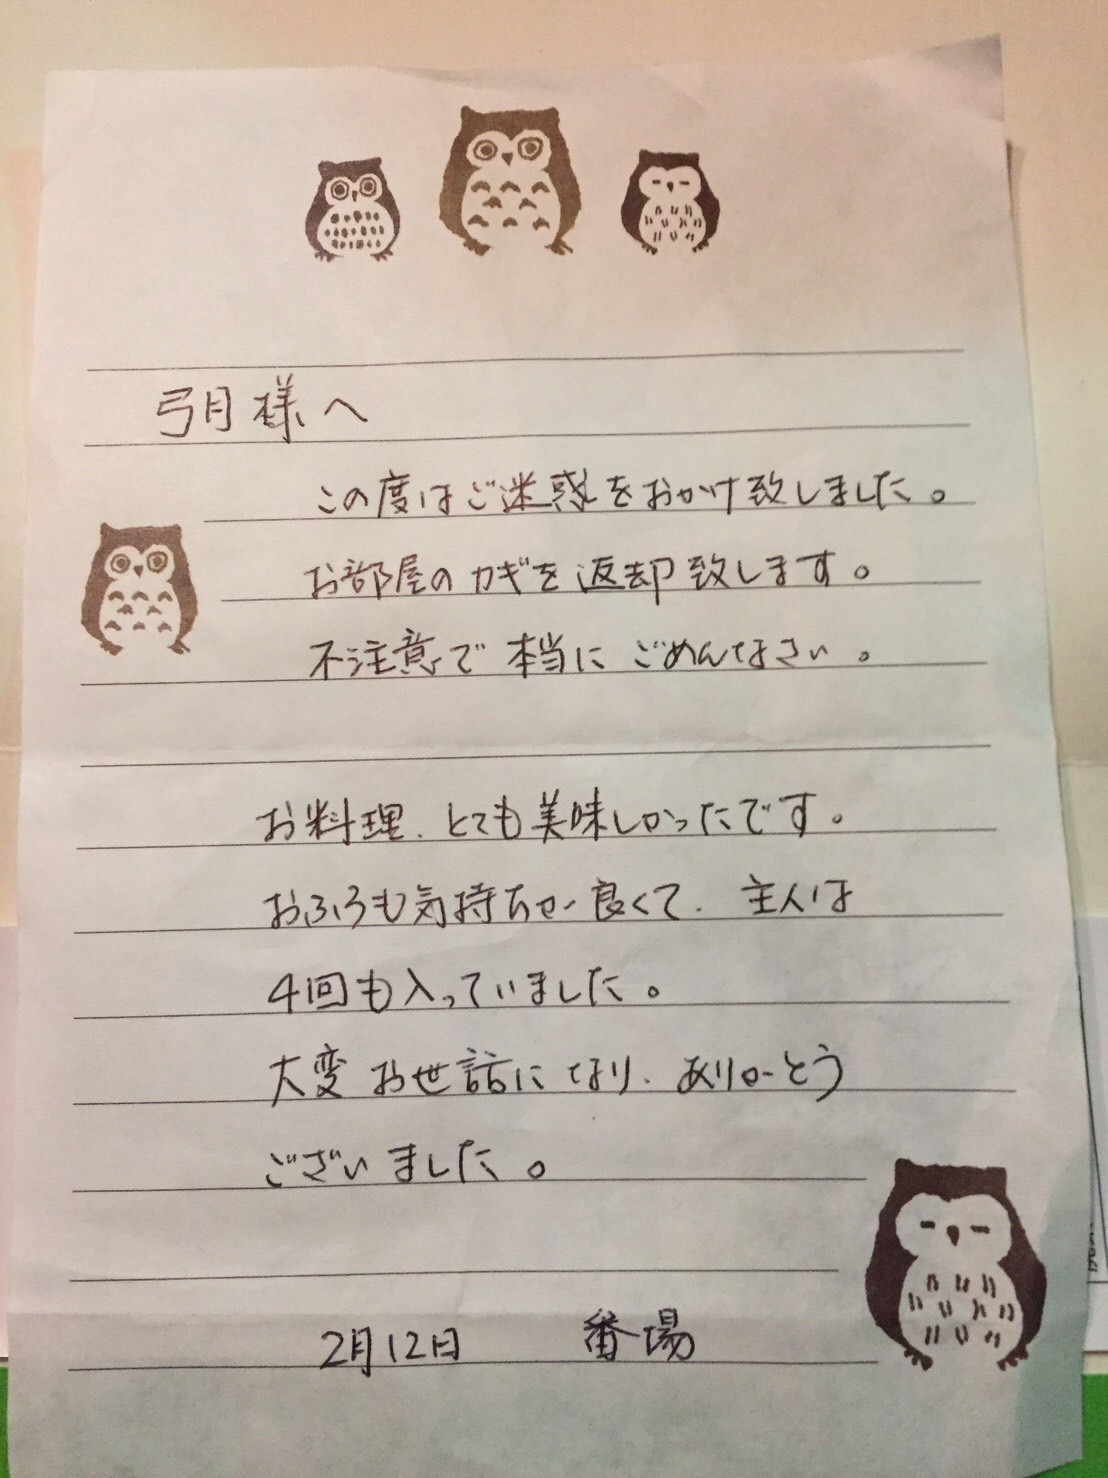 弓月様へ
この度はご迷惑をおかけ致しました。
お部屋のカギを返却致します。
不注意で本当にごめんなさい。
お料理、とても美味しかったです。
おふろも気持ちが良くて、主人は
4回も入っていました。
大変お世話になり、ありがとう
ございました。
2月12日 番場